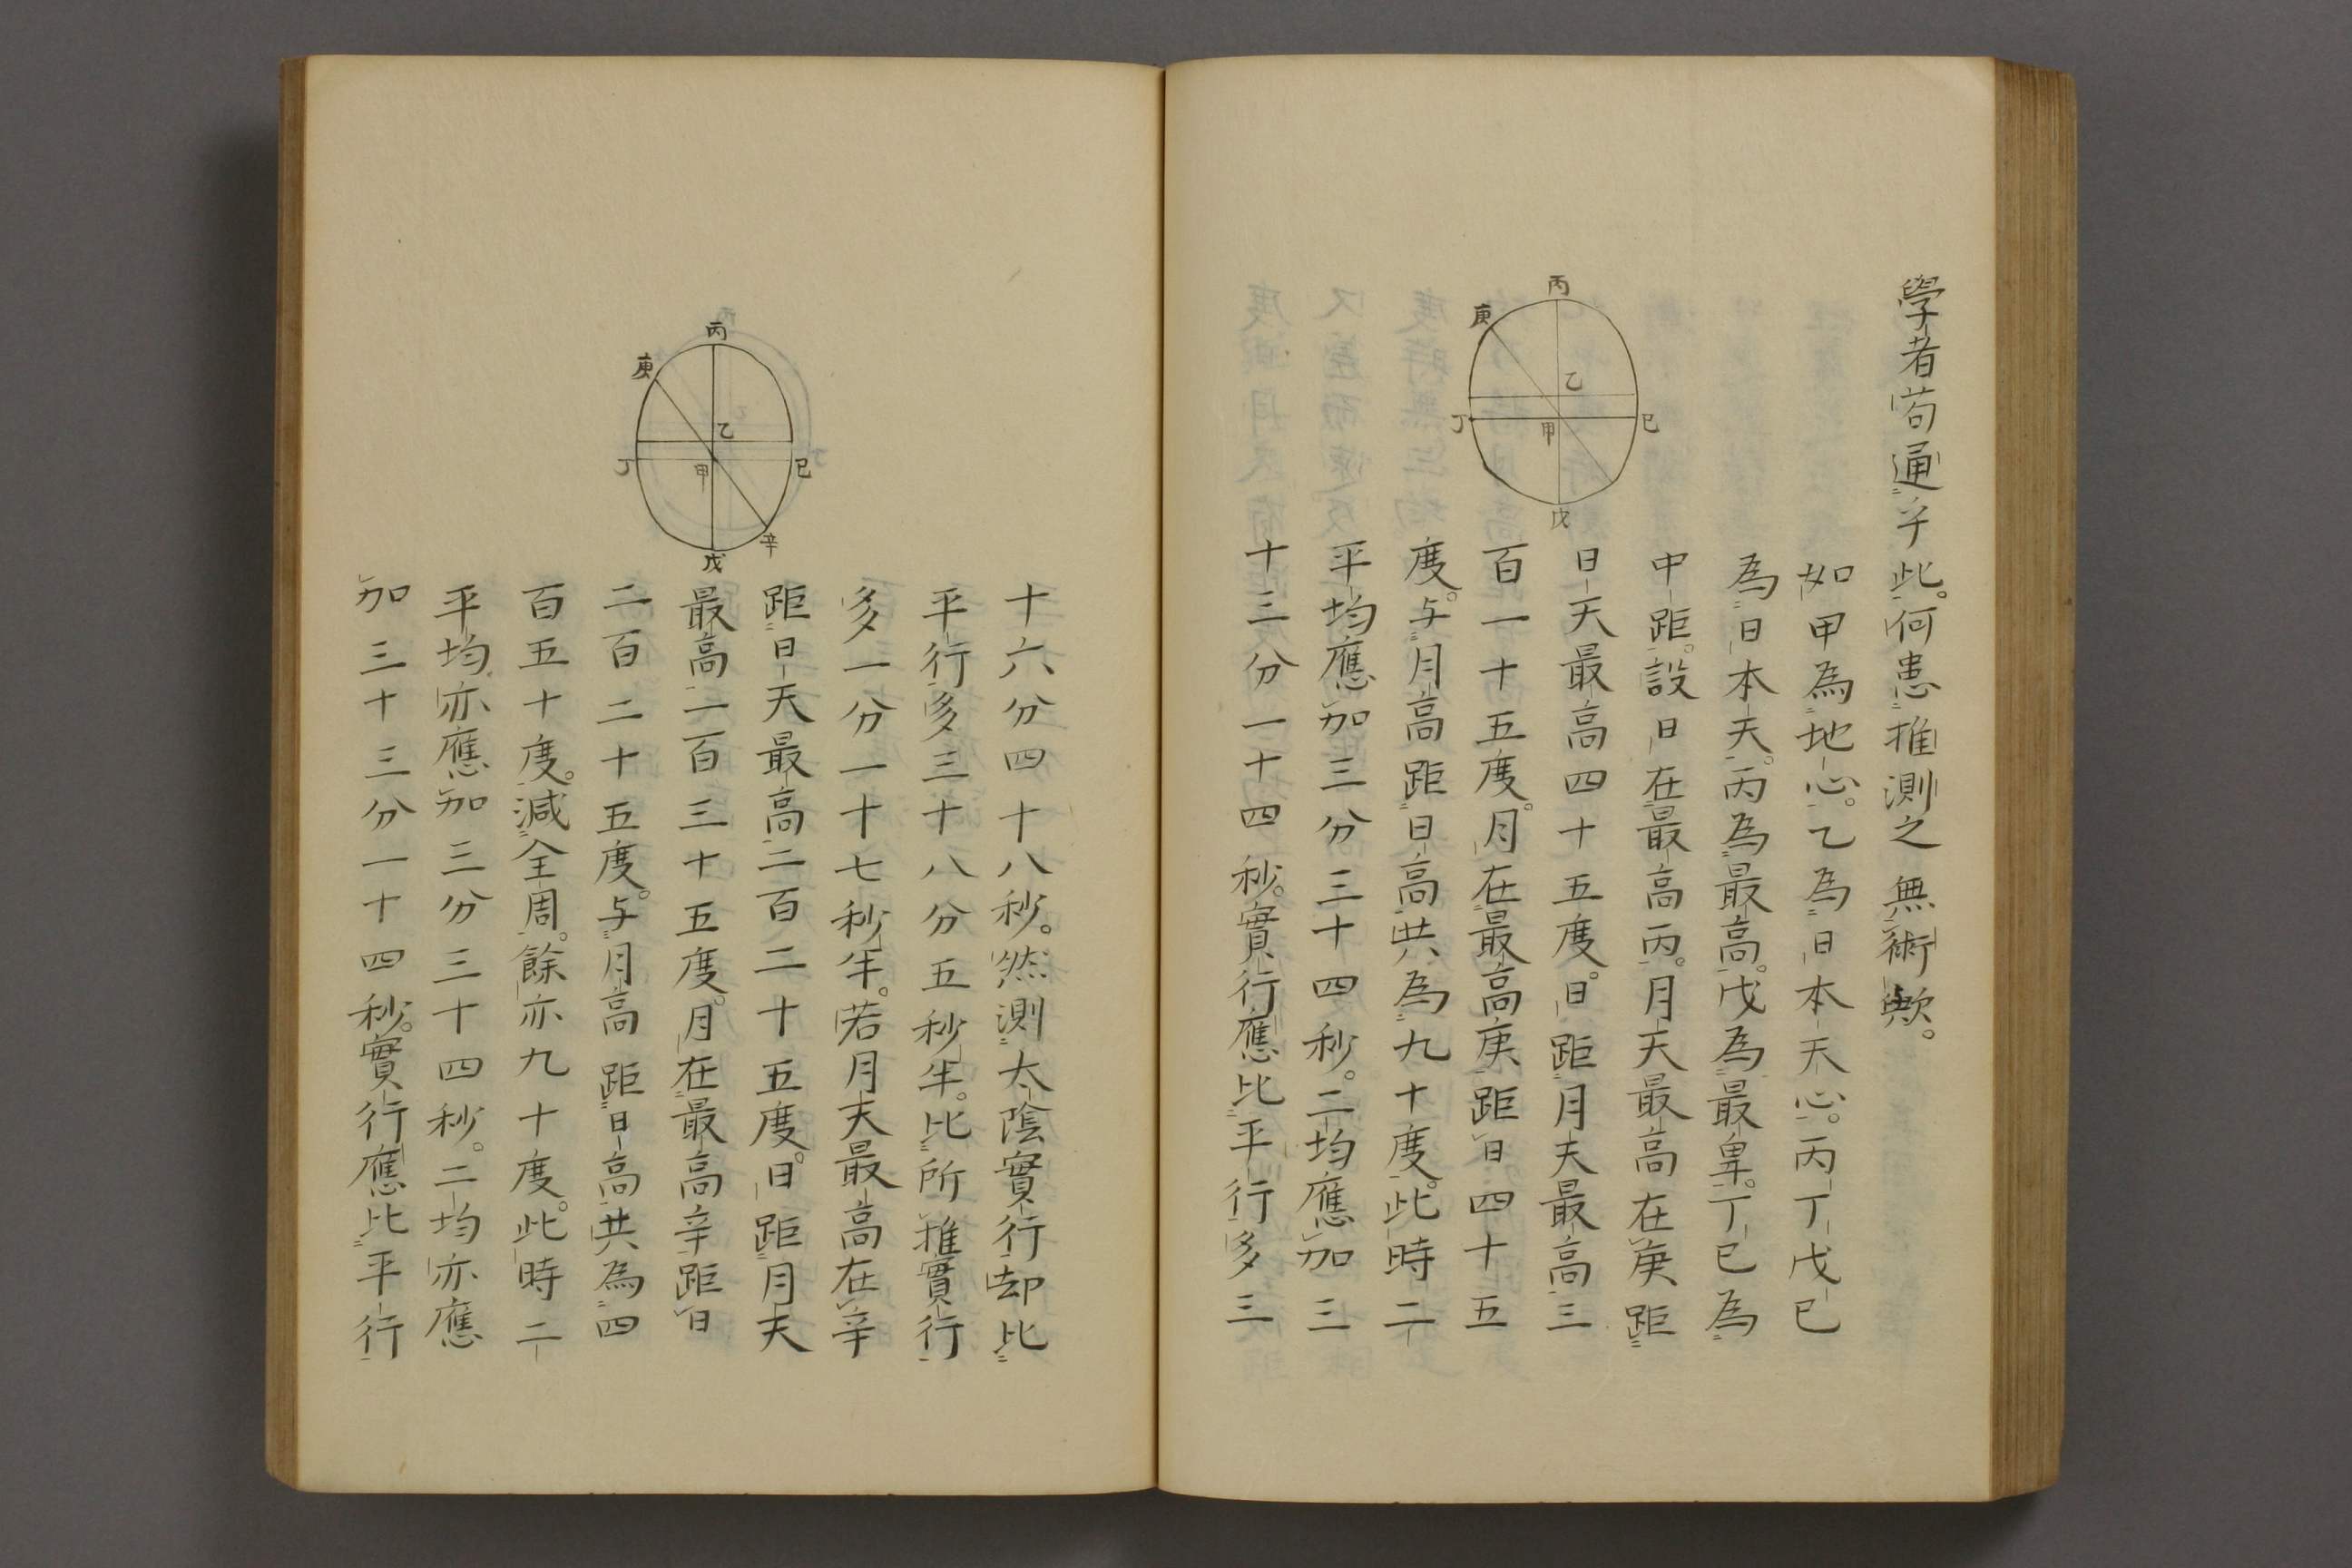 學者苟通乎此。何患推測之無術歟。
如甲為地心。乙為日本天心。丙丁戊已
為日本天。丙為最高。戊為最卑。丁已為
中距。設日在最高丙。月天最高在庚距
日天最高四十五度。日距月天最高三
百一十五度。月在最高庚距日四十五
度。与月高距日高共為九十度。此時二
平均應加三分三十四秒。二均應加三
十三分一十四秒。實行應比平行多三
丙
庚
乙
丁
甲
已
戊
十六分四十八秒。然測太陰實行却比
平行多三十八分五秒半。比所推實行
多一分一十七秒半。若月天最高在辛
距日天最高二百二十五度。日距月天
最高一百三十五度。月在最高辛距日
二百二十五度。与月高距日高共為四
百五十度。減全周。餘亦九十度。此時二
平均亦應加三分三十四秒。二均亦應
加三十三分一十四秒。實行應比平行
丙
庚
乙
丁
甲
已
辛
戊